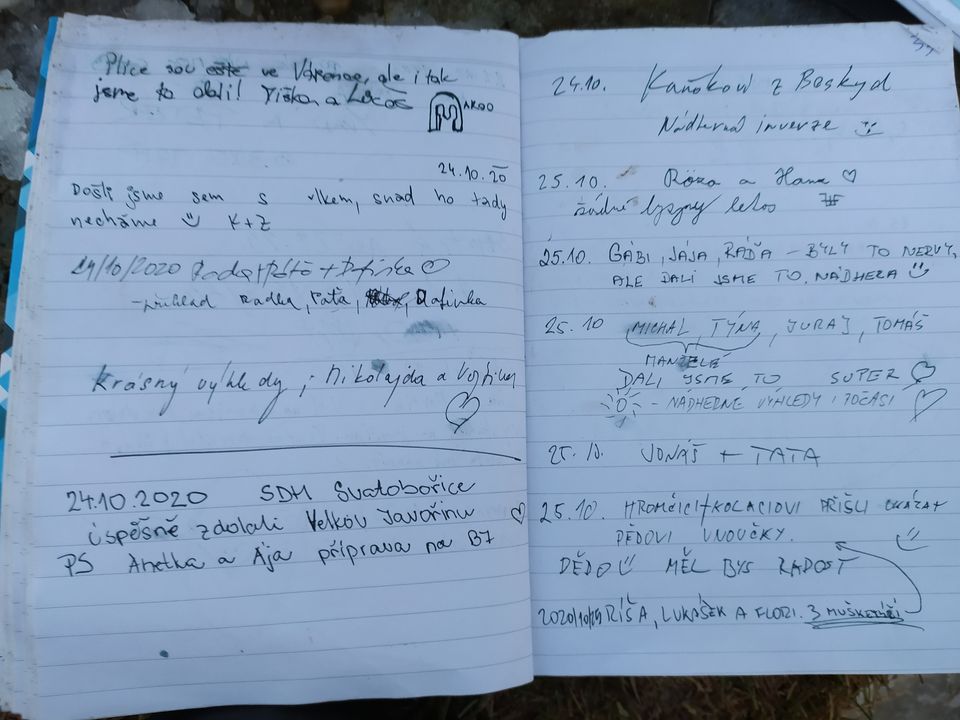 Plíce sou ve Vápence, ale i tak
jsme to dali! Tiška a
MAKOO
24.10.20
Došli jsme sem s vlkem, snad ho tady
necháme K+Z
24/10/2020 Radka +
-překlad Radka, Páťa, Dafinka
Krásný výhledy, Nikolajda a Vojtíšek
24.10.2020 SDH Svatobořice
úspěšně zdolali Velkou Javořinu
PS Anetka a Ája příprava na B7
24.10. Kaňokovi z Beskyd
Nádherná inverze
25.10. Róza a Hana
žádný lysyny letos
25.10. GÁBI, JÁJA, RÁĎA - BYLY TO NERVY,
ALE DALI JSME TO, NÁDHERA
25.10 MICHAL, TÝNA, JURAJ, TOMÁŠ
MANŽELÉ
DALI JSME TO SUPER
- NÁDHERNÉ VÝHLEDY I POČASÍ
25.10. JONÁŠ + TATA
25.10 HROMČÍCI+KOLACIOVI PŘIŠLI UKÁZAT
DĚDOVI VNOUČKY.
DĚDO MĚL BYS RADOST
2020/10/25 RÍŠA, LUKÁŠEK A FLORI. 3 MUŠKETÝŘI